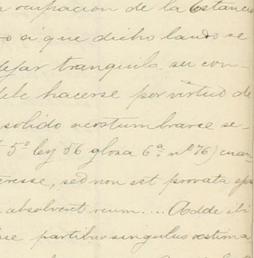 ocupacion de la Estancia
si que dicho laudo se
dejar tranquila su con-
debe hacerse por virtud de
solido acostumbrarse se-
5º ley 56 glosa 6ª nº 76)
sed non sit provata
absolvent reum.... Adde ibi
partibus singulus estima